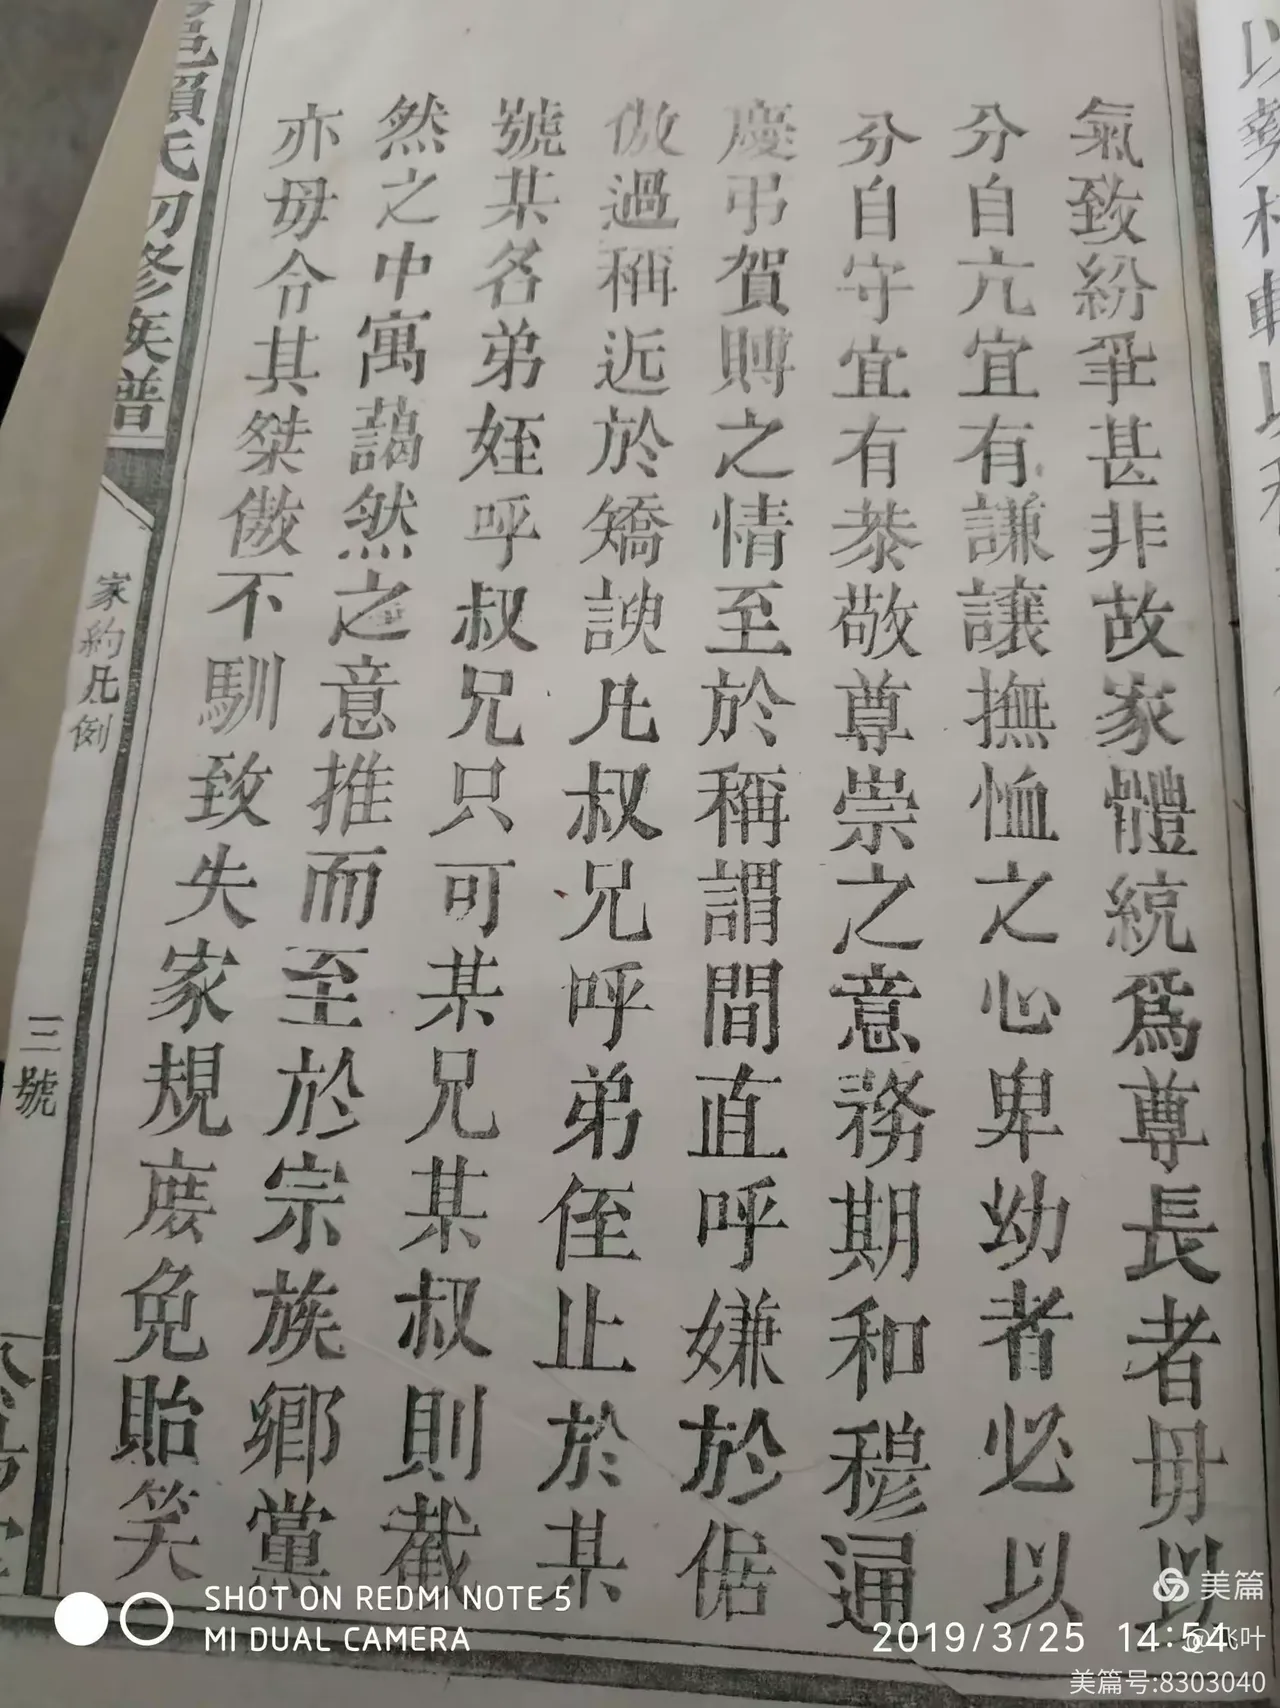 氣致紛爭甚非故家體統爲尊長者毋以
分自亢宜有謙讓撫恤之心卑幼者必以
分自守宜有恭敬尊崇之意務期和穆通
慶弔賀賻之情至於稱謂間直呼嫌於倨
傲過稱近於矯諛凡叔兄呼弟侄止於某
號某名弟姪呼叔兄只可某兄某叔則截
然之中寓藹然之意推而至於宗族鄉黨
亦毋令其桀傲不馴致失家規庶免貽笑
邑賴氏初修族譜
家約凡例
三號
SHOT ON REDMI NOTE 5
MI DUAL CAMERA
美篇
2019/3/25 14:54
@飞叶
美篇号:8303040